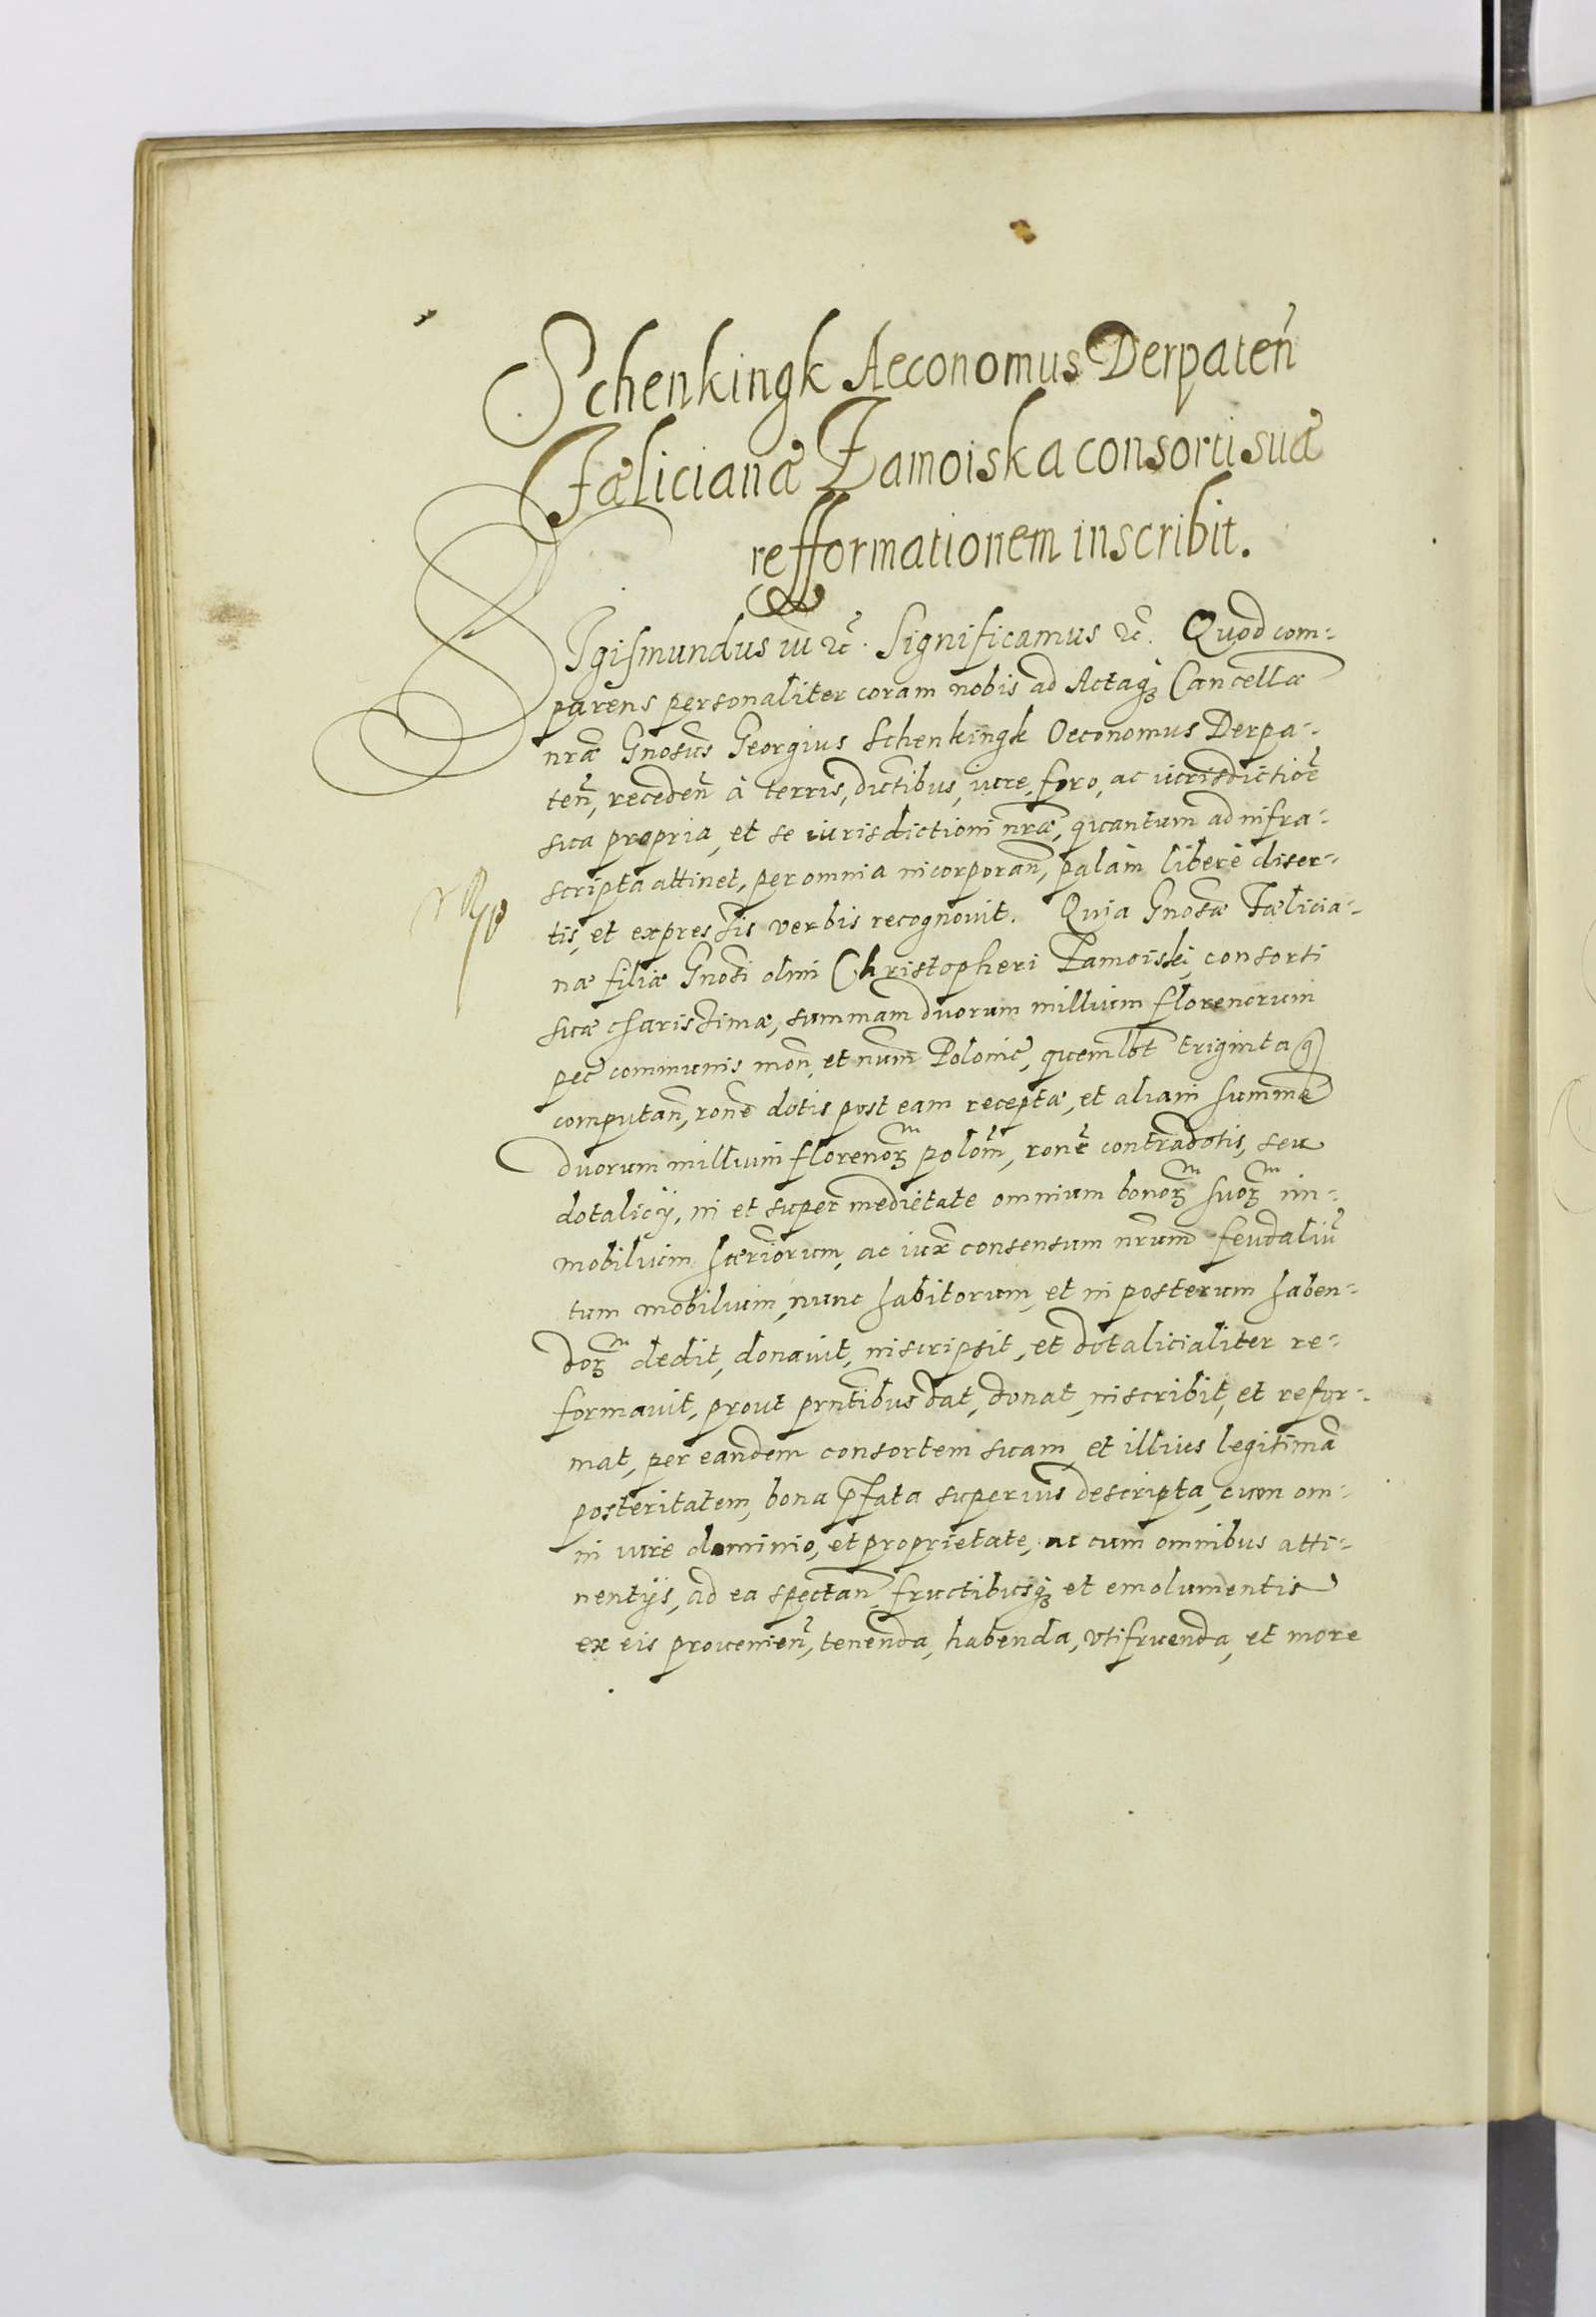 Schenkingk Aeconomus Derpateñ
Fæliciana Zamoiska consorti suæ
refformationem inscribit.
SIgismundus iii ꝛc̃. Significamus ꝛc̃. Quod com-
parens personaliter coram nobis ad Actaqꝫ Cancellæ
nr̃æ Gnosus Georgius Schenkingk Oeconomus Derpa-
teñ, recedeñ à terris, dictibus, iure, foro, ac iurisdictiõe
sua propria, et se iurisdictioni nr̃æ, quantum ad infra-
scripta attinet, per omnia incorporañ, palam liberè diser-
tis, et expressis verbis recognouit. Quia Gnosæ Fælicia-
næ filiæ Gnosi olim Christopheri Zamoiski, consorti
suæ charissimæ, summam duorum millium florenorum
pec̃ communis moñ, et num̃ Polonic̃, quemlbt triginta gͦ
computañ, rone dotis post eam receptæ, et aliam summã
duorum millium florenoꝝm polon̄, rone contradotis, seu
dotalicÿ, in et super medietate omnium bonoꝝm suoꝝm im-
mobilium hæriorum, ac iux consensum nr̃um feudaliũ
tum mobilium, nunc habitorum, et in posterum haben-
doꝝm dedit, donauit, inscripsit, et dotalicialiter re-
formauit, prout pr̃ntibus dat, donat, inscribit, et refor-
mat, per eandem consortem suam, et illius legitimã
posteritatem, bona p̃fata superius descripta, cum om-
ni iure dominio, et proprietate, ac cum omnibus atti-
nentÿs, ad ea spectañ, fructibusqꝫ et emolumentis
ex eis prouenieñ, tenenda, habenda, vtifruenda, et more